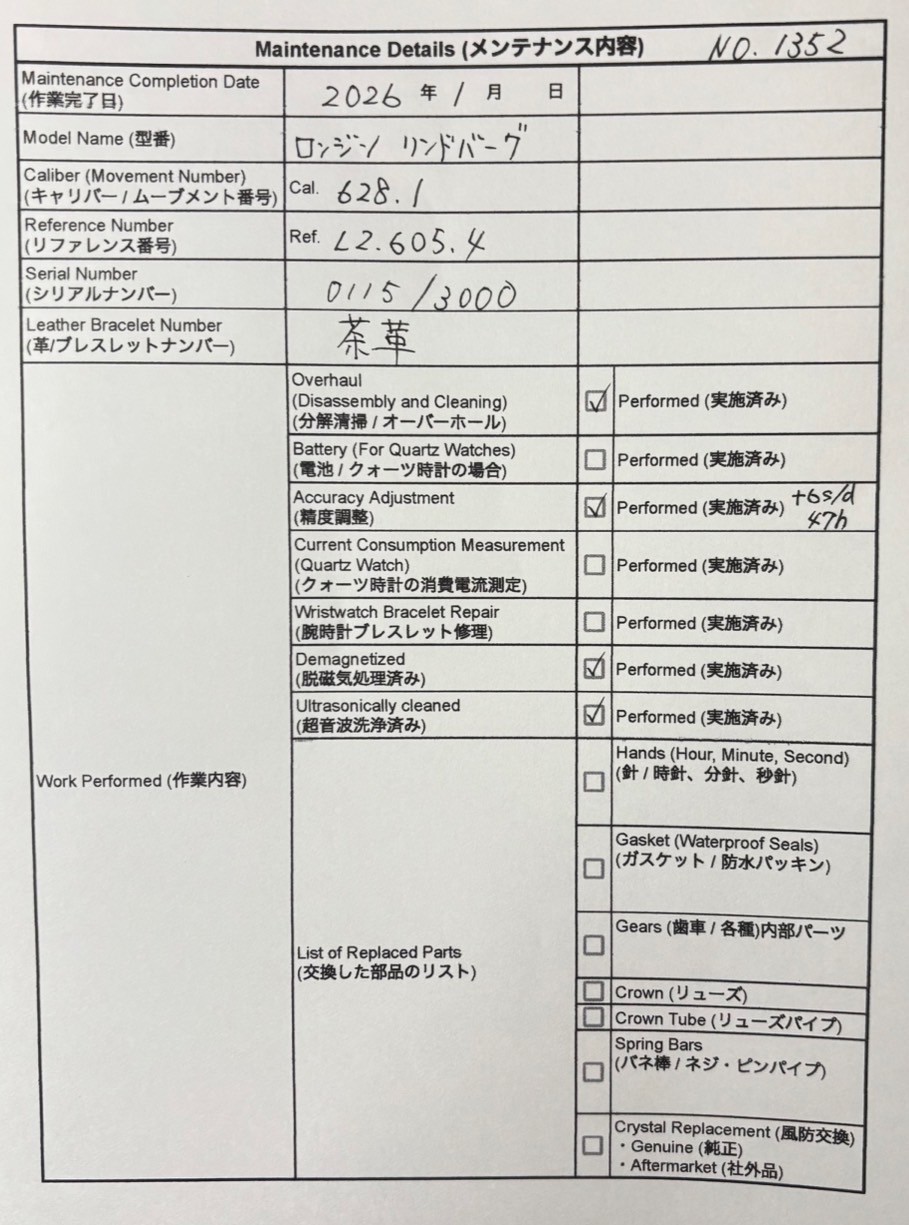 Maintenance Details (メンテナンス内容) NO. 1352
Maintenance Completion Date
(作業完了日)
2026 年 1 月 日
Model Name (型番)
ロンジン リンドバーグ
Caliber (Movement Number)
(キャリバー / ムーブメント番号)
Cal. 628.1
Reference Number
(リファレンス番号)
Ref. L2.605.4
Serial Number
(シリアルナンバー)
0115/3000
Leather Bracelet Number
(革/ブレスレットナンバー)
茶革
Work Performed (作業内容)
Overhaul
(Disassembly and Cleaning)
(分解清掃 / オーバーホール)
Performed (実施済み)
Battery (For Quartz Watches)
(電池 / クォーツ時計の場合)
Performed (実施済み)
Accuracy Adjustment
(精度調整)
Performed (実施済み) +6s/d
47h
Current Consumption Measurement
(Quartz Watch)
(クォーツ時計の消費電流測定)
Performed (実施済み)
Wristwatch Bracelet Repair
(腕時計ブレスレット修理)
Performed (実施済み)
Demagnetized
(脱磁気処理済み)
Performed (実施済み)
Ultrasonically cleaned
(超音波洗浄済み)
Performed (実施済み)
List of Replaced Parts
(交換した部品のリスト)
Hands (Hour, Minute, Second)
(針 / 時針、分針、秒針)
Gasket (Waterproof Seals)
(ガスケット / 防水パッキン)
Gears (歯車 / 各種)内部パーツ
Crown (リューズ)
Crown Tube (リューズパイプ)
Spring Bars
(バネ棒 / ネジ・ピンパイプ)
Crystal Replacement (風防交換)
・Genuine (純正)
・Aftermarket (社外品)